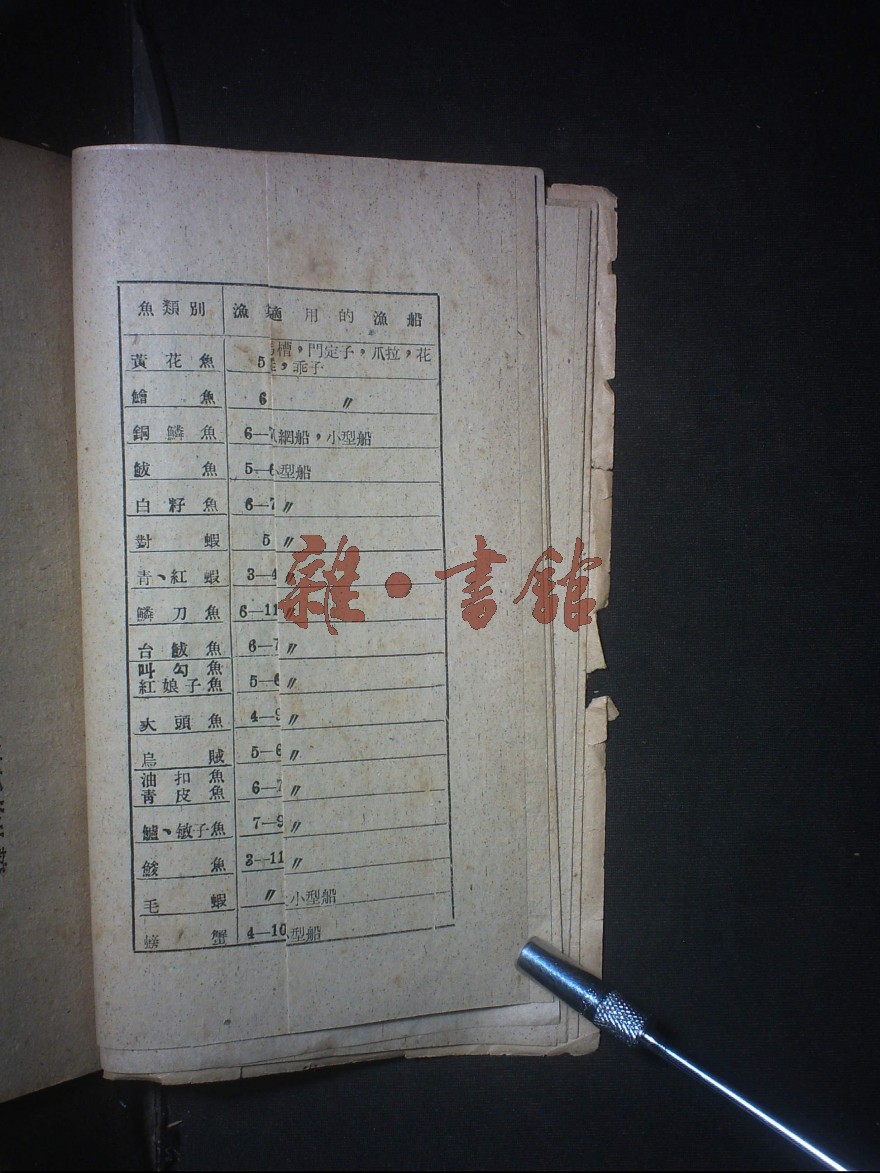 魚類別 漁 適用的漁船
黃花魚 5 槽，門定子，爪拉，花
，乖子
鱠魚 6 〃
銅鱗魚 6—7 網船，小型船
鮁魚 5—6 型船
白籽魚 6—7 〃
對蝦 5 〃
青、紅蝦 3—4 〃
鱗刀魚 6—11 〃
台鮁魚 6—7 〃
叫勾魚
紅娘子魚 5—6 〃
大頭魚 4—9 〃
烏賊 5—6 〃
油扣魚
青皮魚 6—7 〃
鱸、敏子魚 7—9 〃
鮻魚 3—11 〃
毛蝦 〃 小型船
螃蟹 4—10 型船
雜·書館